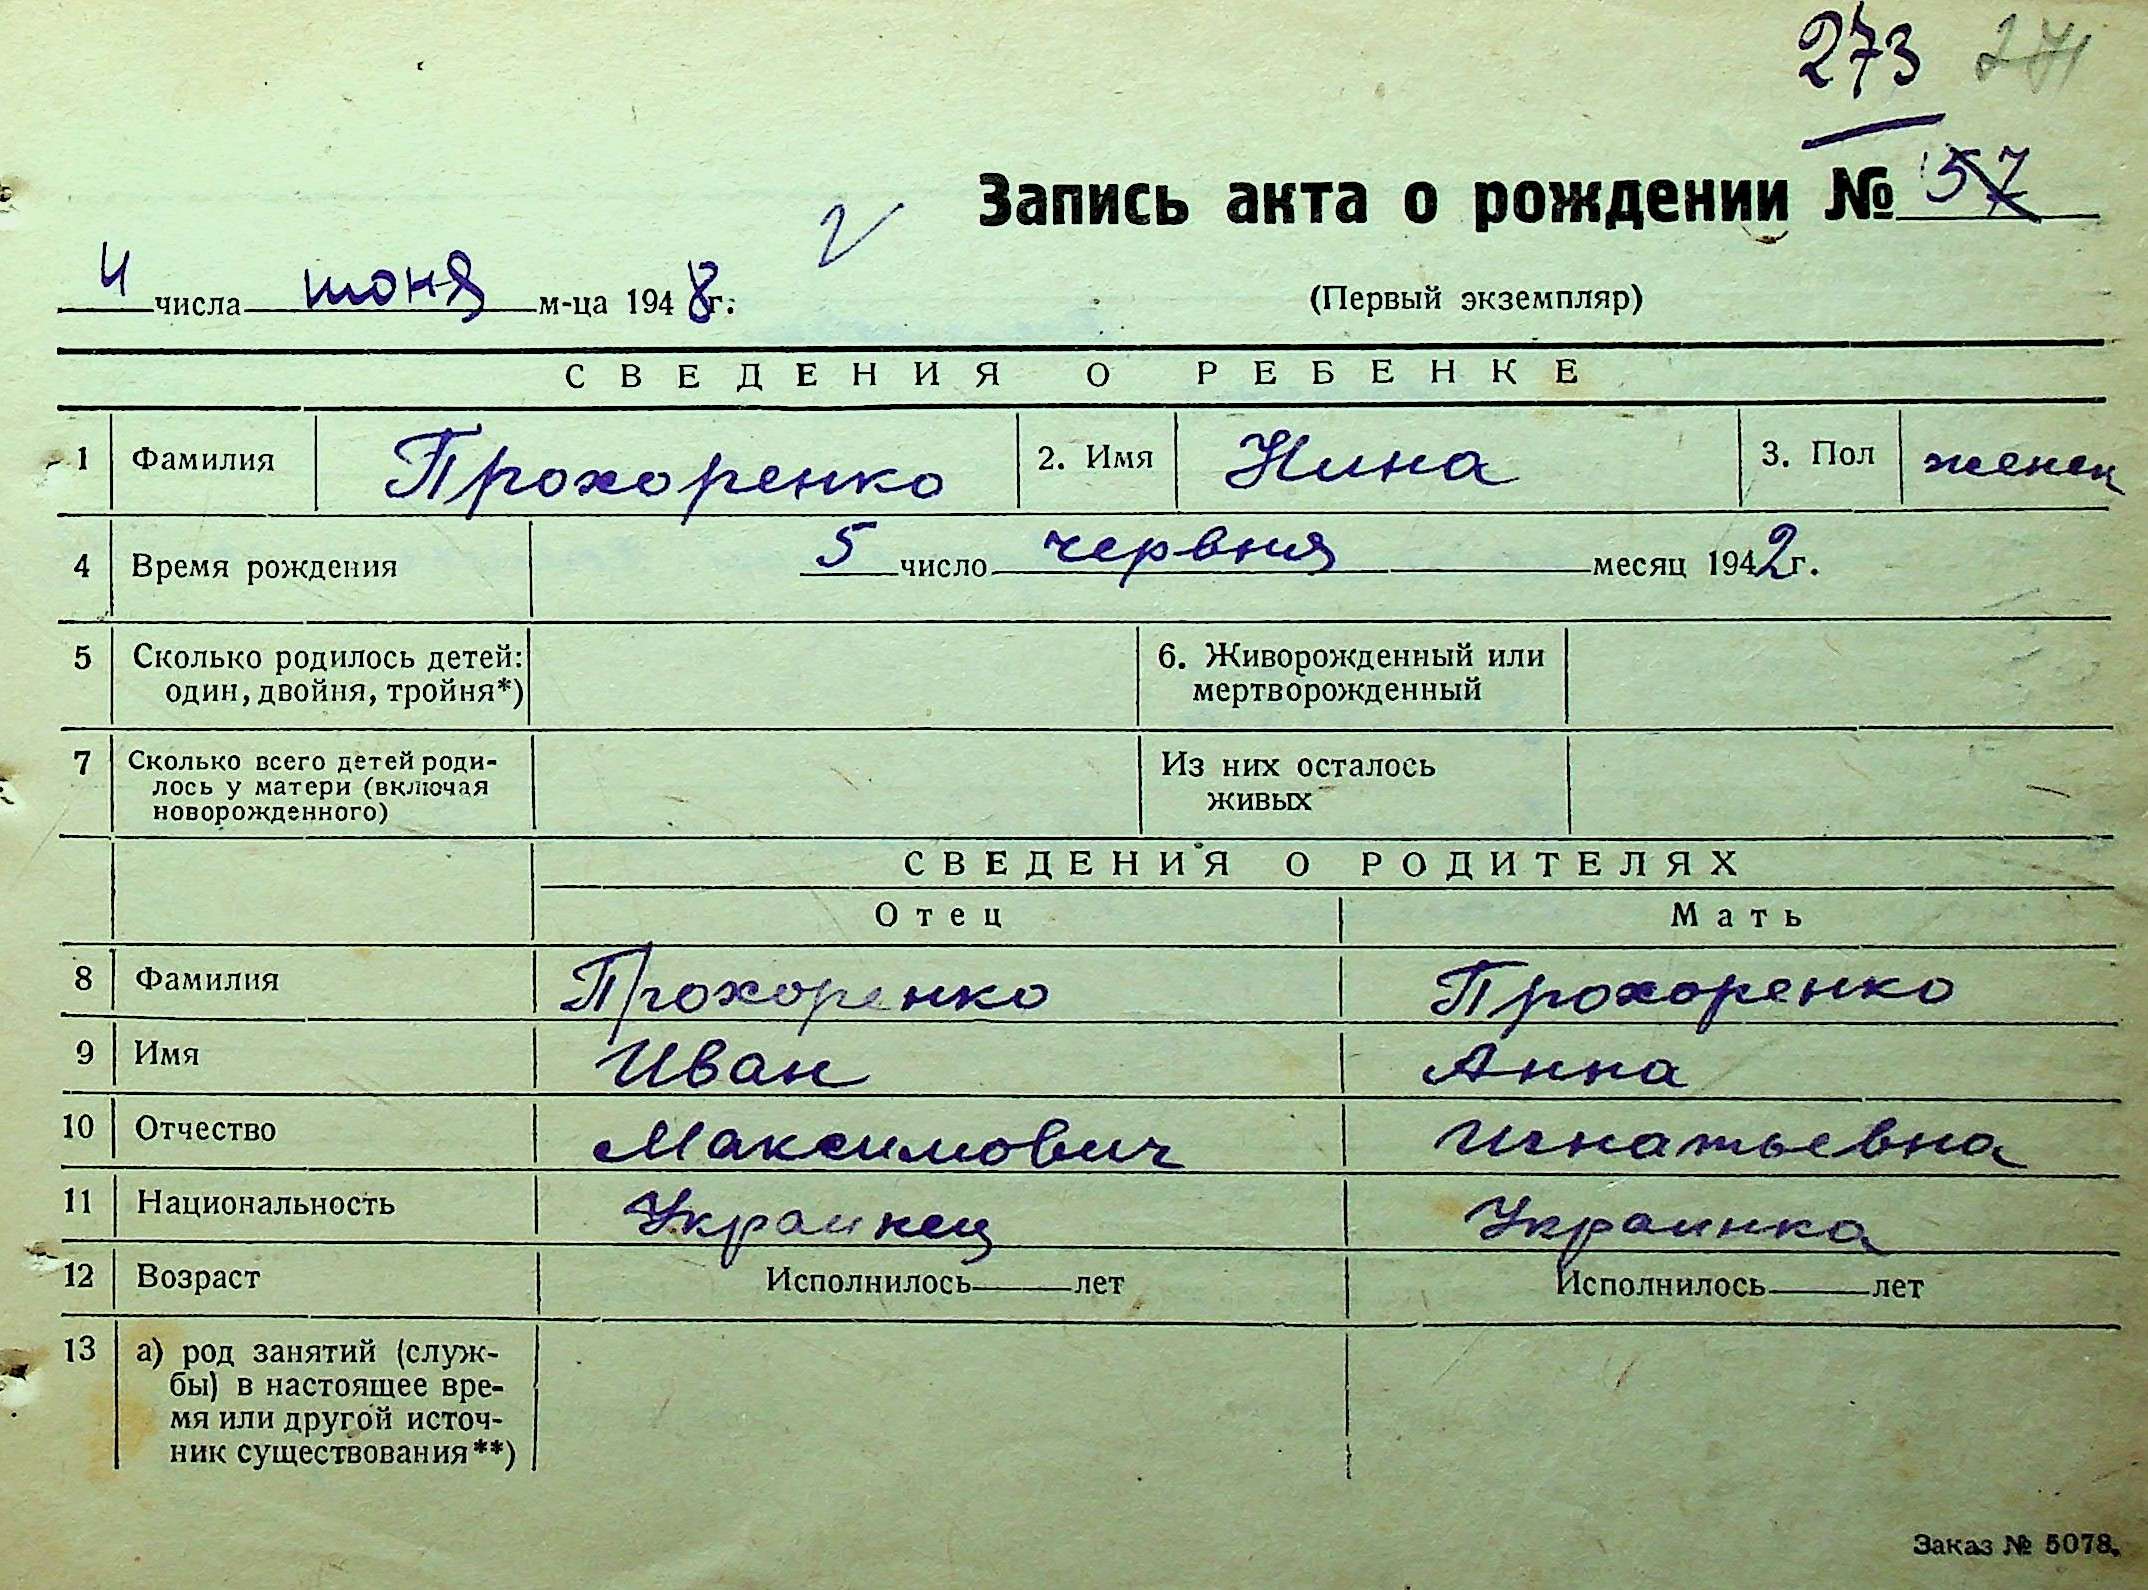 273 271
Запись акта о рождении № 57
4 числа июня м-ца 1948 г.
(Первый экземпляр)
СВЕДЕНИЯ О РЕБЕНКЕ
1 Фамилия Прохоренко 2. Имя Нина 3. Пол женск
4 Время рождения 5 число червня месяц 1942 г.
5 Сколько родилось детей: один, двойня, тройня*) 6. Живорожденный или мертворожденный
7 Сколько всего детей роди-
лось у матери (включая
новорожденного)
Из них осталось
живых
СВЕДЕНИЯ О РОДИТЕЛЯХ
Отец Мать
8 Фамилия Прохоренко Прохоренко
9 Имя Иван Анна
10 Отчество Максимович Игнатьевна
11 Национальность Украинец Украинка
12 Возраст Исполнилось лет Исполнилось лет
13 а) род занятий (служ-
бы) в настоящее вре-
мя или другой источ-
ник существования**)
Заказ № 5078.